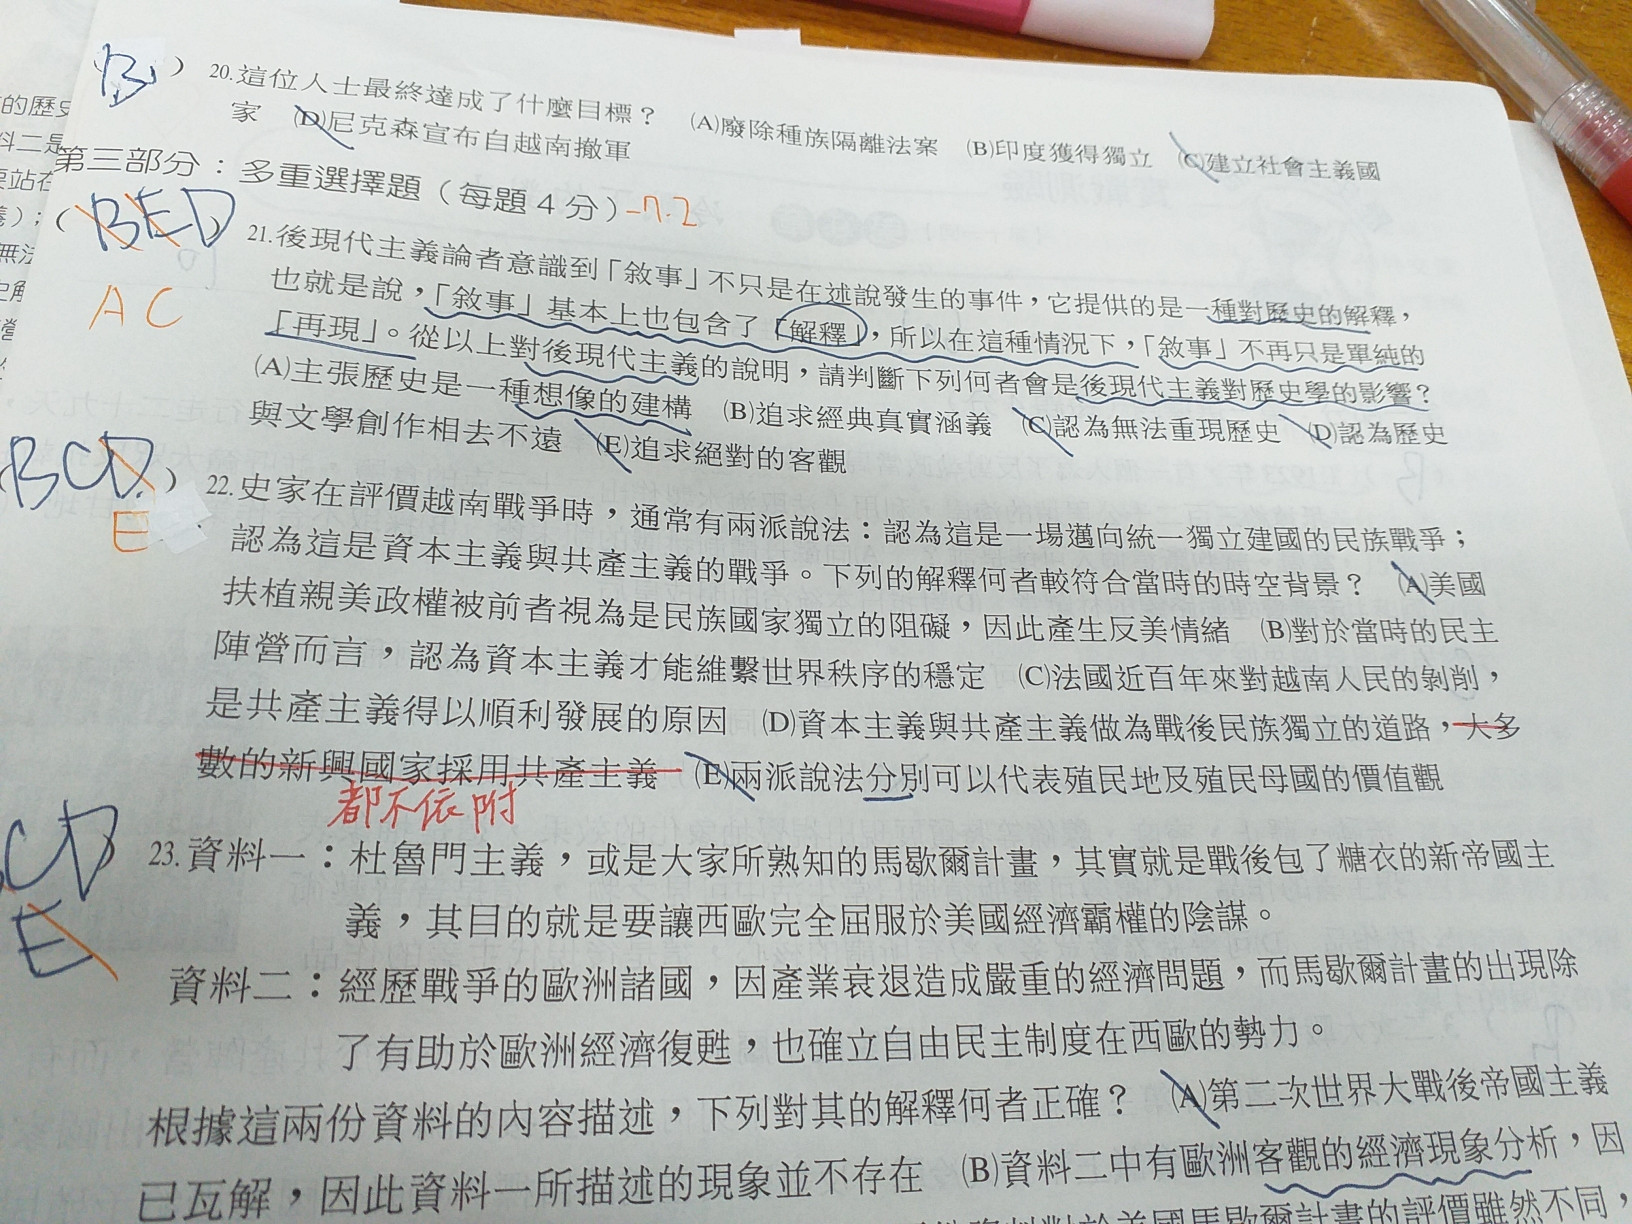 B
) 20.這位人士最終達成了什麼目標? (A)廢除種族隔離法案 (B)印度獲得獨立 (C)建立社會主義國
家 (D)尼克森宣布自越南撤軍
第三部分:多重選擇題(每題4分) -7.2
( BED
21.後現代主義論者意識到「敘事」不只是在述說發生的事件,它提供的是一種對歷史的解釋,
也就是說,「敘事」基本上也包含了「解釋」,所以在這種情況下,「敘事」不再只是單純的
AC
「再現」。從以上對後現代主義的說明,請判斷下列何者會是後現代主義對歷史學的影響?
(A)主張歷史是一種想像的建構 (B)追求經典真實涵義 (C)認為無法重現歷史 (D)認為歷史
與文學創作相去不遠 (E)追求絕對的客觀
BCD )
E
22.史家在評價越南戰爭時,通常有兩派說法:認為這是一場邁向統一獨立建國的民族戰爭;
認為這是資本主義與共產主義的戰爭。下列的解釋何者較符合當時的時空背景? (A)美國
扶植親美政權被前者視為是民族國家獨立的阻礙,因此產生反美情緒 (B)對於當時的民主
陣營而言,認為資本主義才能維繫世界秩序的穩定 (C)法國近百年來對越南人民的剝削,
是共產主義得以順利發展的原因 (D)資本主義與共產主義做為戰後民族獨立的道路,大多
數的新興國家採用共產主義 (E)兩派說法分別可以代表殖民地及殖民母國的價值觀
都不依附
CD )
E
23.資料一:杜魯門主義,或是大家所熟知的馬歇爾計畫,其實就是戰後包了糖衣的新帝國主
義,其目的就是要讓西歐完全屈服於美國經濟霸權的陰謀。
資料二:經歷戰爭的歐洲諸國,因產業衰退造成嚴重的經濟問題,而馬歇爾計畫的出現除
了有助於歐洲經濟復甦,也確立自由民主制度在西歐的勢力。
根據這兩份資料的內容描述,下列對其的解釋何者正確? (A)第二次世界大戰後帝國主義
已瓦解,因此資料一所描述的現象並不存在 (B)資料二中有歐洲客觀的經濟現象分析,因
資料對於美國馬歇爾計畫的評價雖然不同,